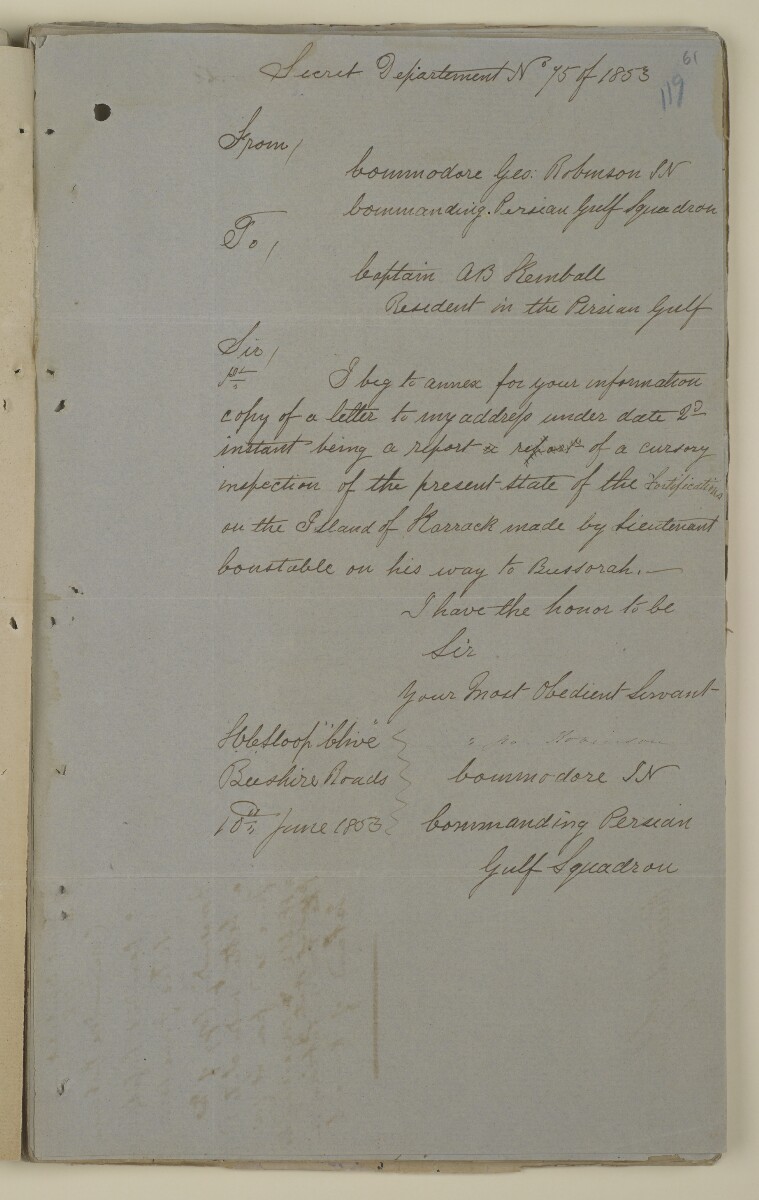 61
119
Secret Departement No 75 of 1853
From,
Commodore Geo: Robinson IN
Commanding Persian Gulf Squadron
To,
Captain AB Kemball
Resident in the Persian Gulf
Sir,
I beg to annex for your information
copy of a letter to my address under date 2d
instant being a report of a cursory
inspection of the present state of the Fortifications
on the Island of Karrack made by Lieutenant
Constable on his way to Bussorah.—
I have the honor to be
Sir
Your Most Obedient Servant
H.C. Sloop "Clive"
Robinson
Bushire Roads
Commodore IN
10th June 1853
Commanding Persian
Gulf Squadron